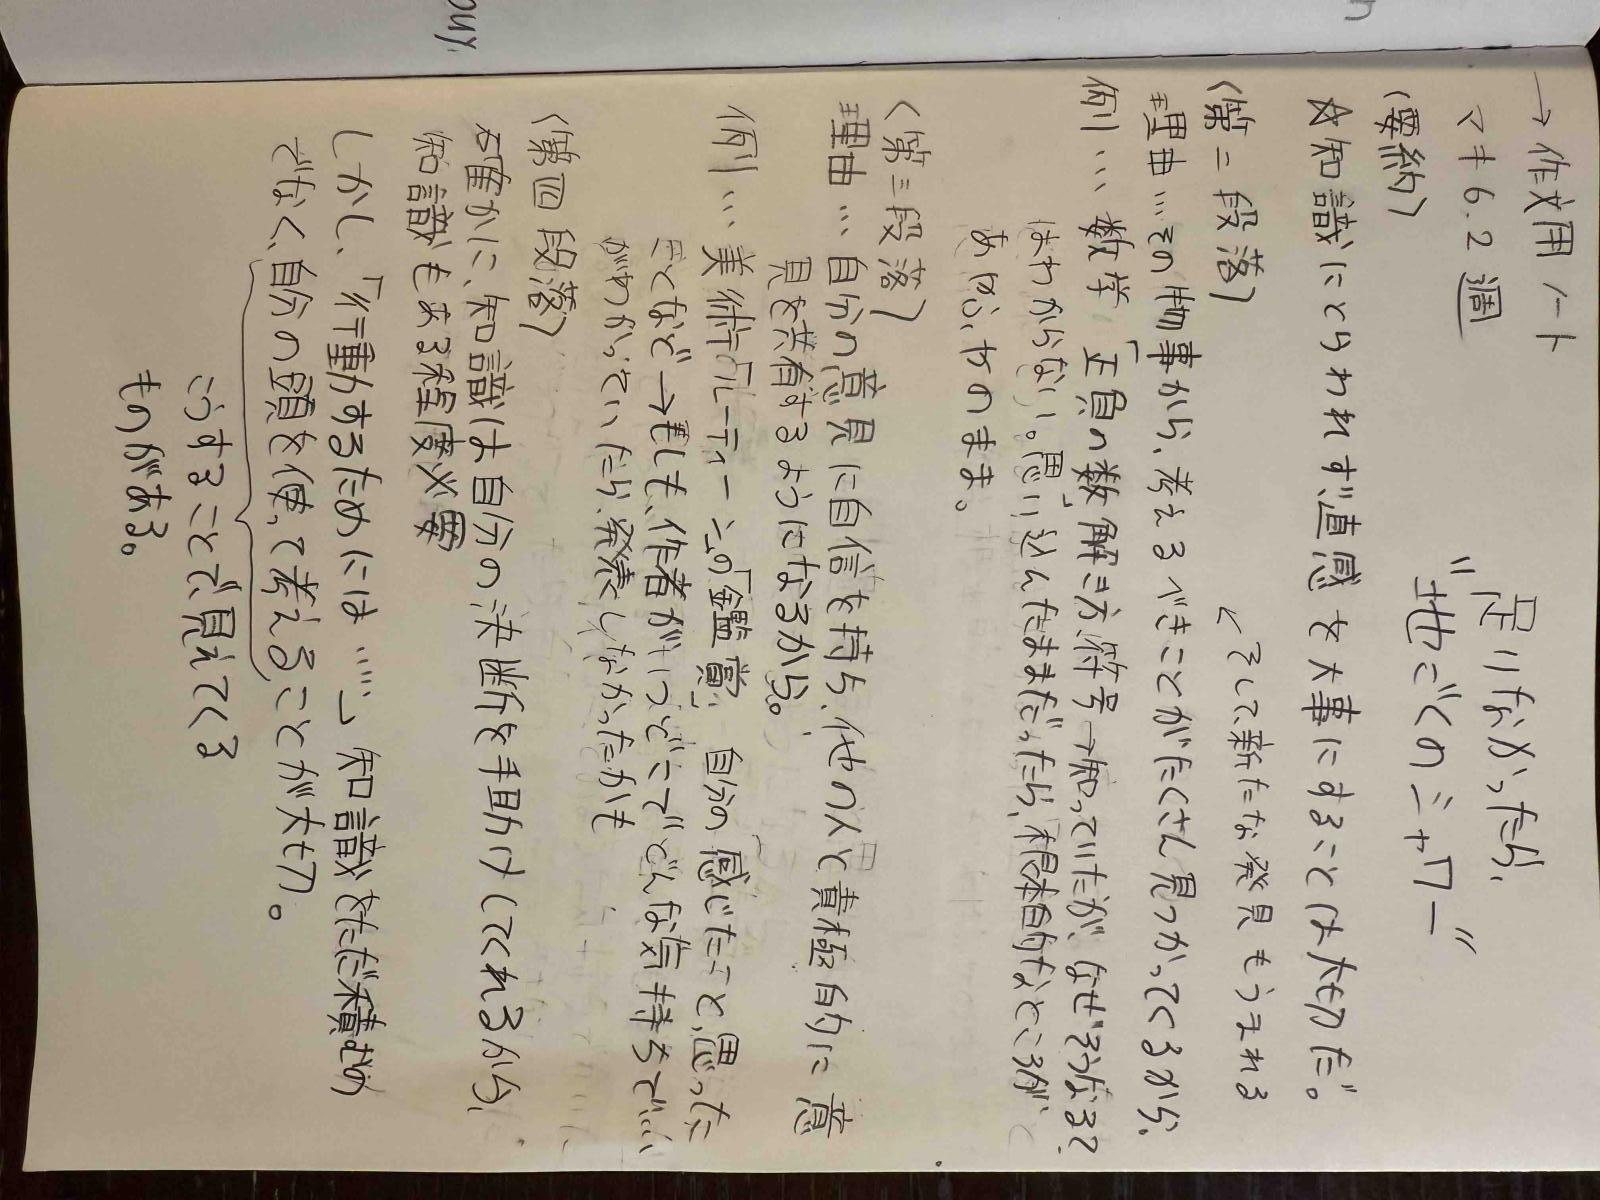 →作文用ノート
マキ6.2週
足りなかったら、
"地ごくのシャワー"
(要約)
☆知識にとらわれず直感を大事にすることは大切だ。
〈第二段落〉
↙そして、新たな発見もうまれる
理由…その物事から、考えるべきことがたくさん見つかってくるから、
例…数学,「正負の数」解き方符号→知っていたが、なぜそうなる?
はわからない。思い込んだままだったら、根本的なところが、
あやふやのまま。
〈第三段落〉
理由…自分の意見に自信を持ち、他の人と積極的に意
見を共有するようになるから。
例…美術「ルーティーン」の「鑑賞」自分の感じたこと、思った
ことなど→もしも、作者がいつどこでどんな気持ちで……
がわかっていたら、発表しなかったかも
〈第四段落〉
確かに、知識は自分の決断を手助けしてくれるから、
知識もある程度必要
しかし、「行動するためには……」知識をただ積むの
でなく、自分の頭を使って考えることが大切。
こうすることで、見えてくる
ものがある。